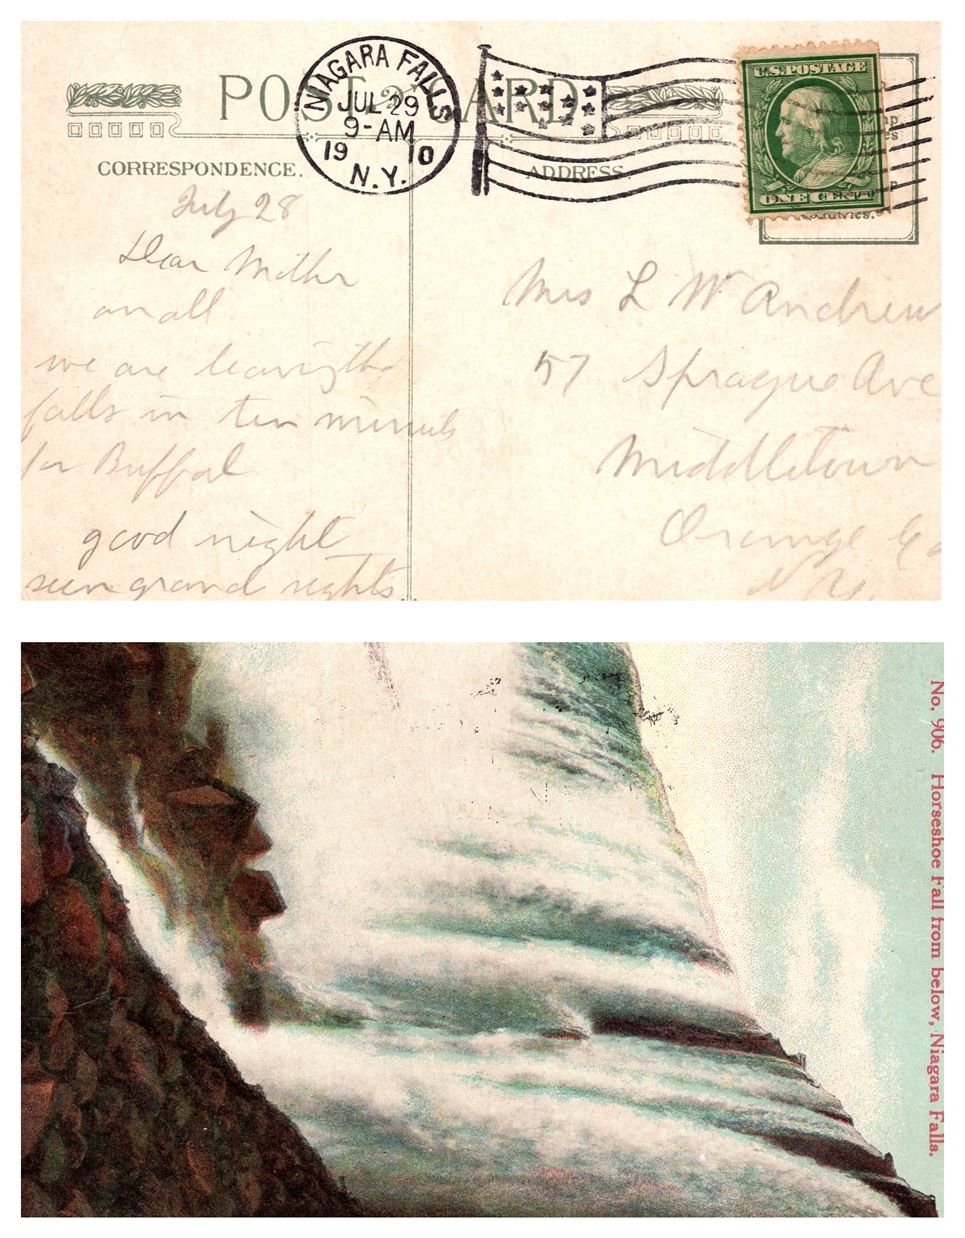 POST CARD
NIAGARA FALLS
JUL 29
9-AM
19 10
N.Y.
U.S. POSTAGE
ONE CENT
CORRESPONDENCE.
ADDRESS
July 28
Dear Mother
an all
we are leaving the
falls in ten minuts
for Buffal
good night
seen grand sights
Mrs L W Andrew
57 Sprague Ave
Middletown
Orange Co
N Y.
No. 906. Horseshoe Fall from below, Niagara Falls.